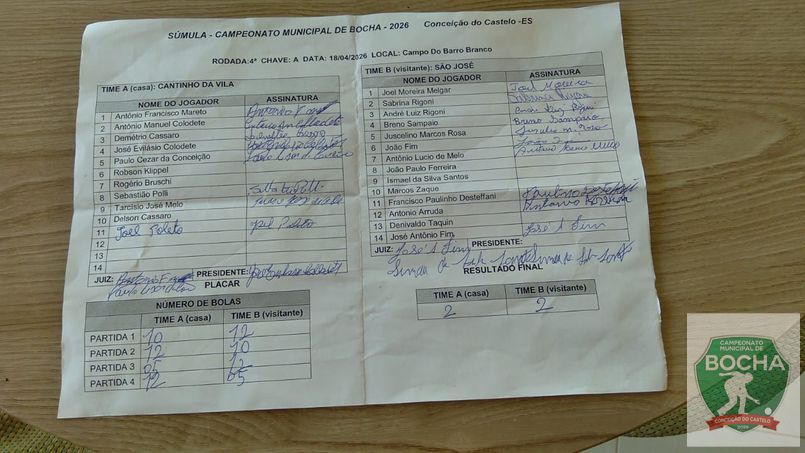 SÚMULA - CAMPEONATO MUNICIPAL DE BOCHA - 2026 Conceição do Castelo -ES
RODADA:4ª CHAVE: A DATA: 18/04/2026 LOCAL: Campo Do Barro Branco
TIME A (casa): CANTINHO DA VILA
NOME DO JOGADOR ASSINATURA
1 Antônio Francisco Mareto
2 Antônio Manuel Colodete
3 Demétrio Cassaro
4 José Evilásio Colodete
5 Paulo Cezar da Conceição
6 Robson Klippel
7 Rogério Bruschi
8 Sebastião Polli
9 Tarcisio José Melo
10 Delson Cassaro
11 Joel Poleto Joel Poleto
12
13
14
JUIZ: PRESIDENTE:
PLACAR
NÚMERO DE BOLAS
TIME A (casa) TIME B (visitante)
PARTIDA 1 10 12
PARTIDA 2 12 10
PARTIDA 3 05 12
PARTIDA 4 12 05
TIME B (visitante): SÃO JOSÉ
NOME DO JOGADOR ASSINATURA
1 Joel Moreira Melgar Joel Moreira
2 Sabrina Rigoni Sabrina Rigoni
3 André Luiz Rigoni
4 Breno Sampaio Breno Sampaio
5 Juscelino Marcos Rosa
6 João Fim
7 Antônio Lucio de Melo
8 João Paulo Ferreira
9 Ismael da Silva Santos
10 Marcos Zaque
11 Francisco Paulinho Desteffani
12 Antonio Arruda
13 Denivaldo Taquin
14 José Antônio Fim José A Fim
JUIZ: José A Fim PRESIDENTE:
RESULTADO FINAL
TIME A (casa) TIME B (visitante)
2 2
CAMPEONATO
MUNICIPAL DE
BOCHA
CONCEIÇÃO DO CASTELO
2026